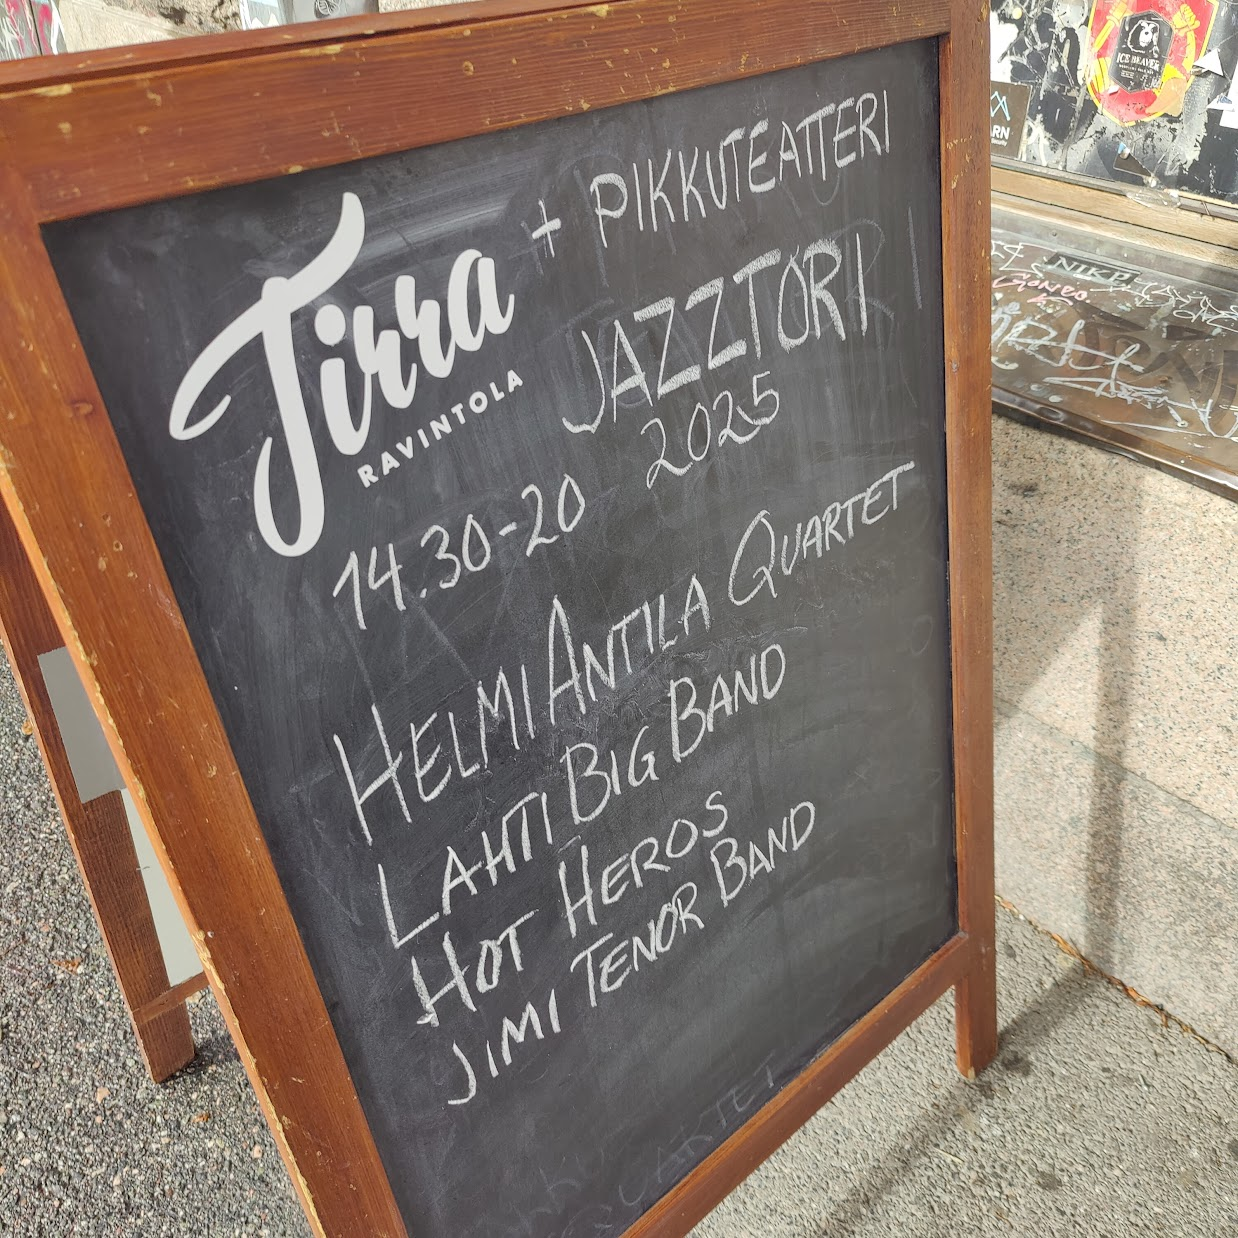 Tirra
RAVINTOLA
+ PIKKUTEATTERI
JAZZTORI
2025
14.30-20
HELMI ANTILA QUARTET
LAHTI BIG BAND
HOT HEROS
JIMI TENOR BAND
QUARTET
ICE BEAVER
ARN
NIKE